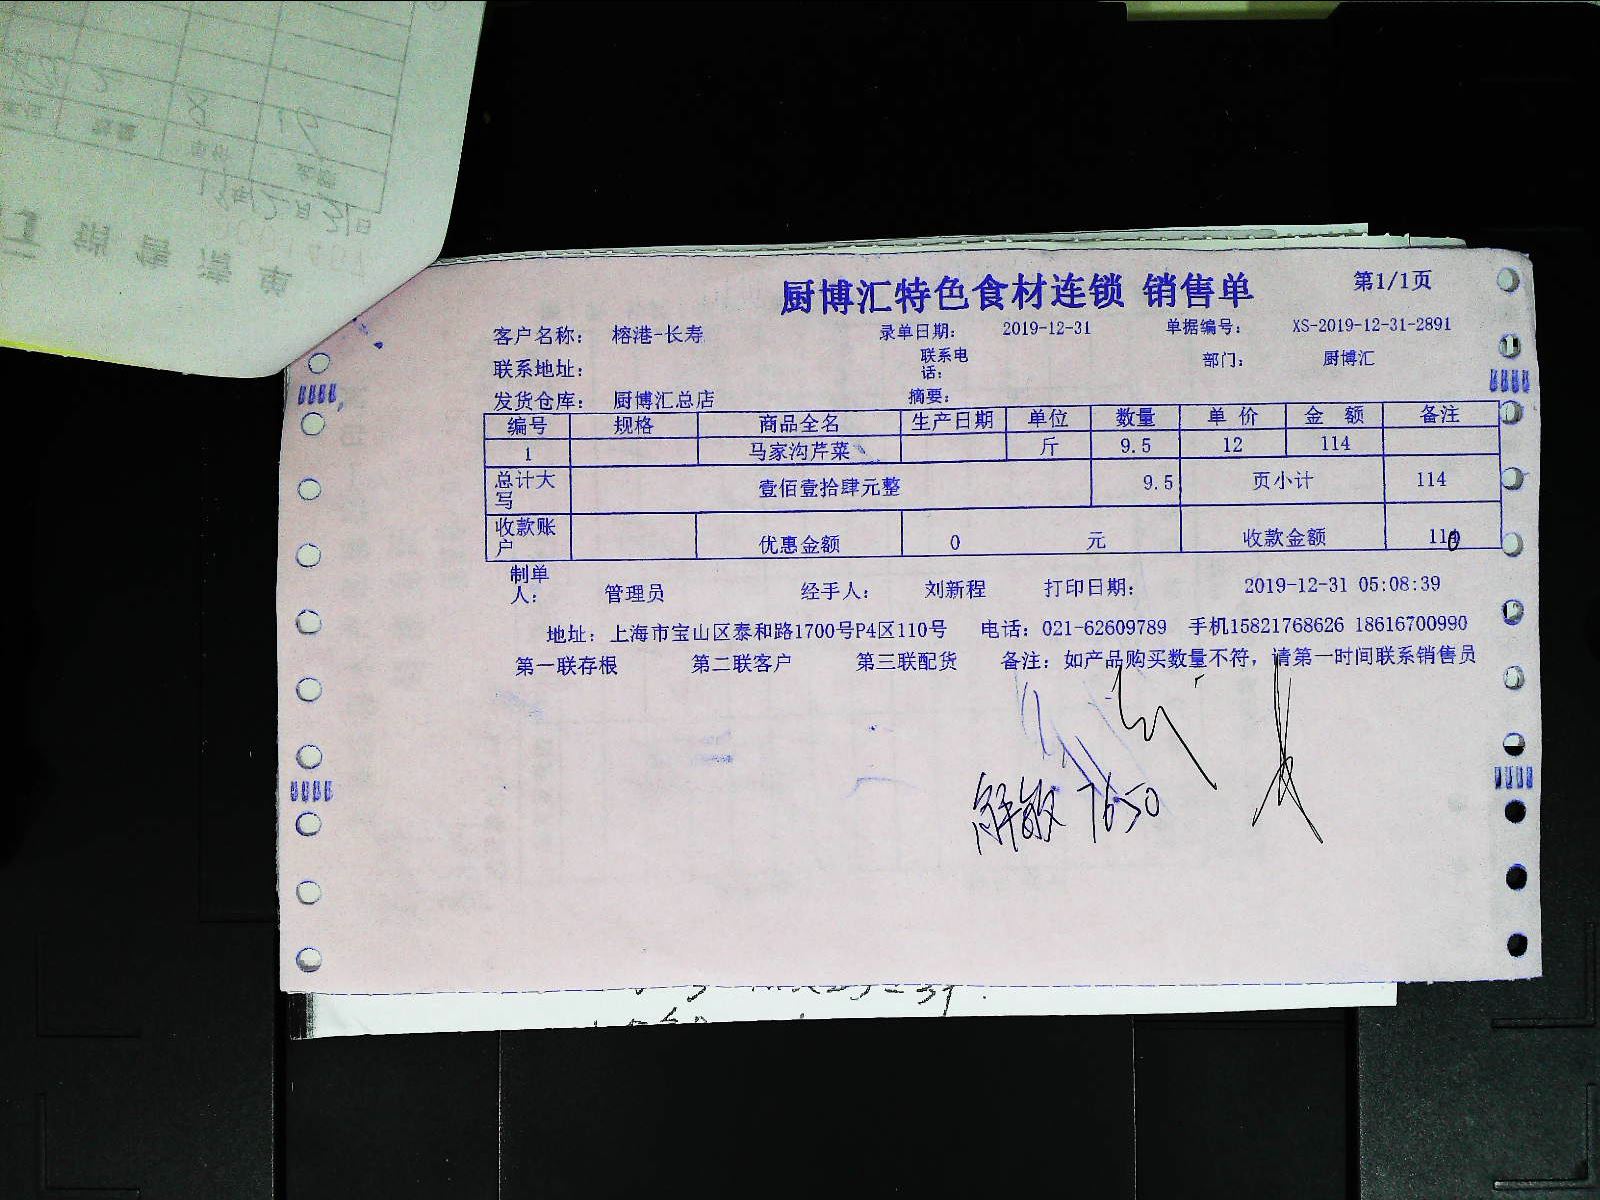 厨博汇特色食材连锁 销售单
第1/1页
客户名称： 榕港-长寿 录单日期： 2019-12-31 单据编号： XS-2019-12-31-2891
联系地址： 联系电话： 部门： 厨博汇
发货仓库： 厨博汇总店 摘要：
编号 规格 商品全名 生产日期 单位 数量 单 价 金 额 备注
1 马家沟芹菜 斤 9.5 12 114
总计大写 壹佰壹拾肆元整 9.5 页小计 114
收款账户 优惠金额 0 元 收款金额 110
制单人： 管理员 经手人： 刘新程 打印日期： 2019-12-31 05:08:39
地址：上海市宝山区泰和路1700号P4区110号 电话：021-62609789 手机15821768626 18616700990
第一联存根 第二联客户 第三联配货 备注：如产品购买数量不符，请第一时间联系销售员
解敏 7650
销售清单